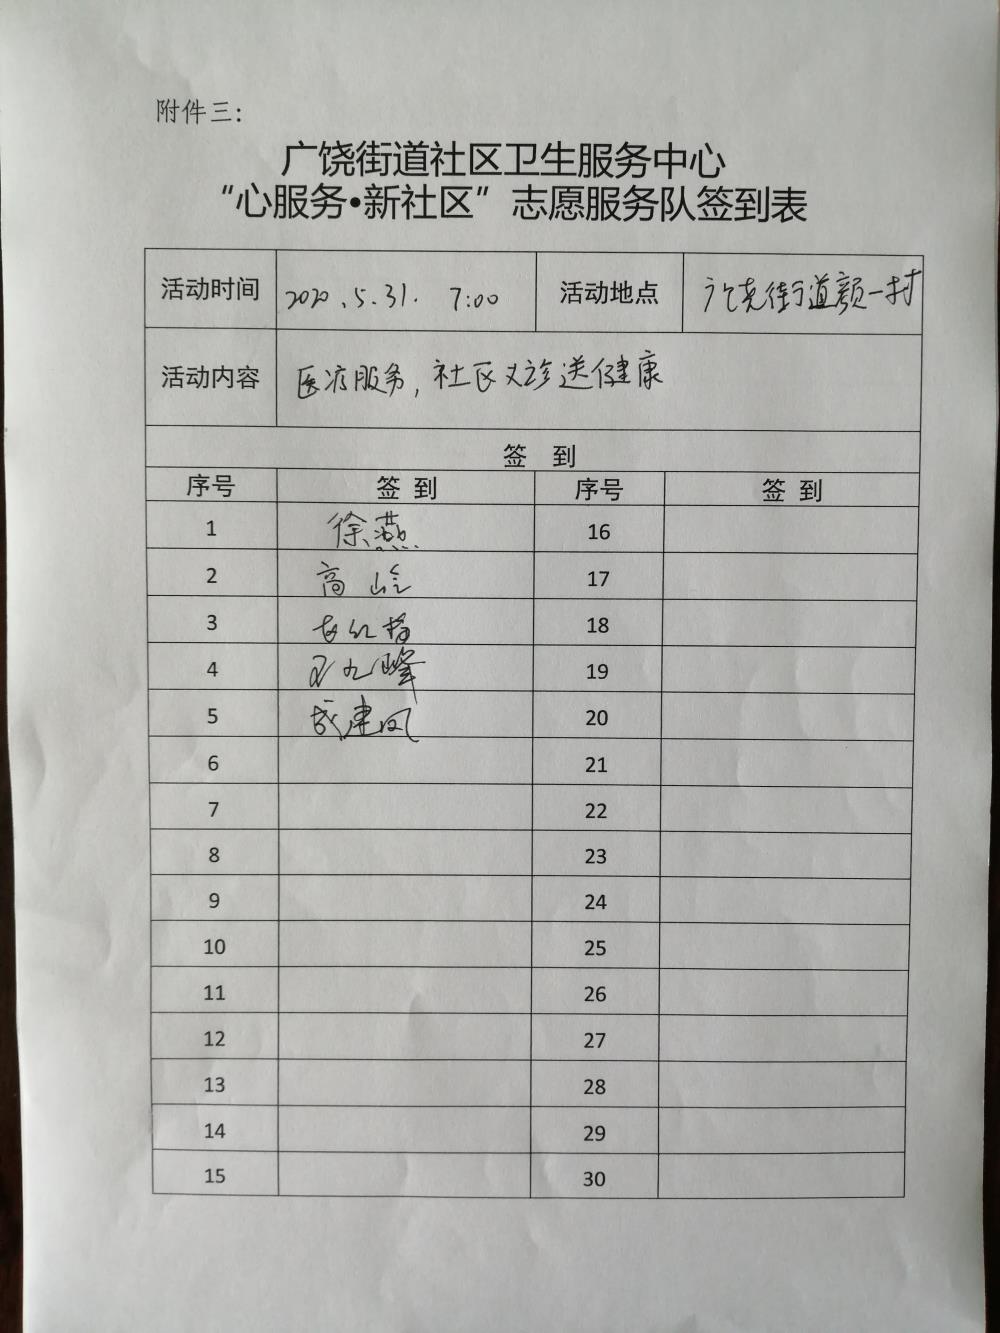 附件三：
广饶街道社区卫生服务中心
“心服务•新社区”志愿服务队签到表
活动时间 2020.5.31. 7:00 活动地点 广饶街道颜一村
活动内容 医疗服务，社区义诊送健康
签 到
序号 签 到 序号 签 到
1 徐燕 16
2 高岭 17
3 18
4 王九峰 19
5 成建凤 20
6 21
7 22
8 23
9 24
10 25
11 26
12 27
13 28
14 29
15 30